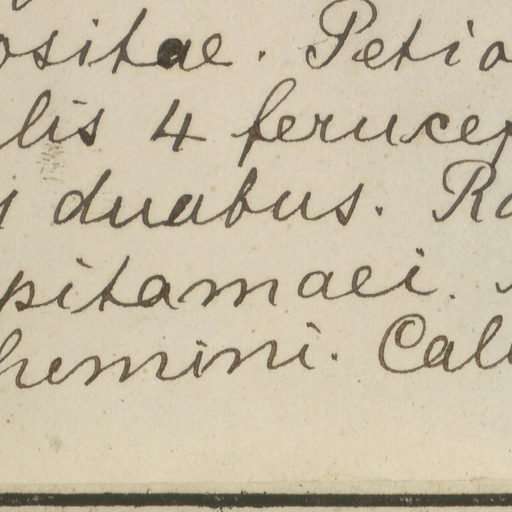 ositae. Petio
lis 4 ferucep
duabus. Ra
pitamaei.
hemini. Cali